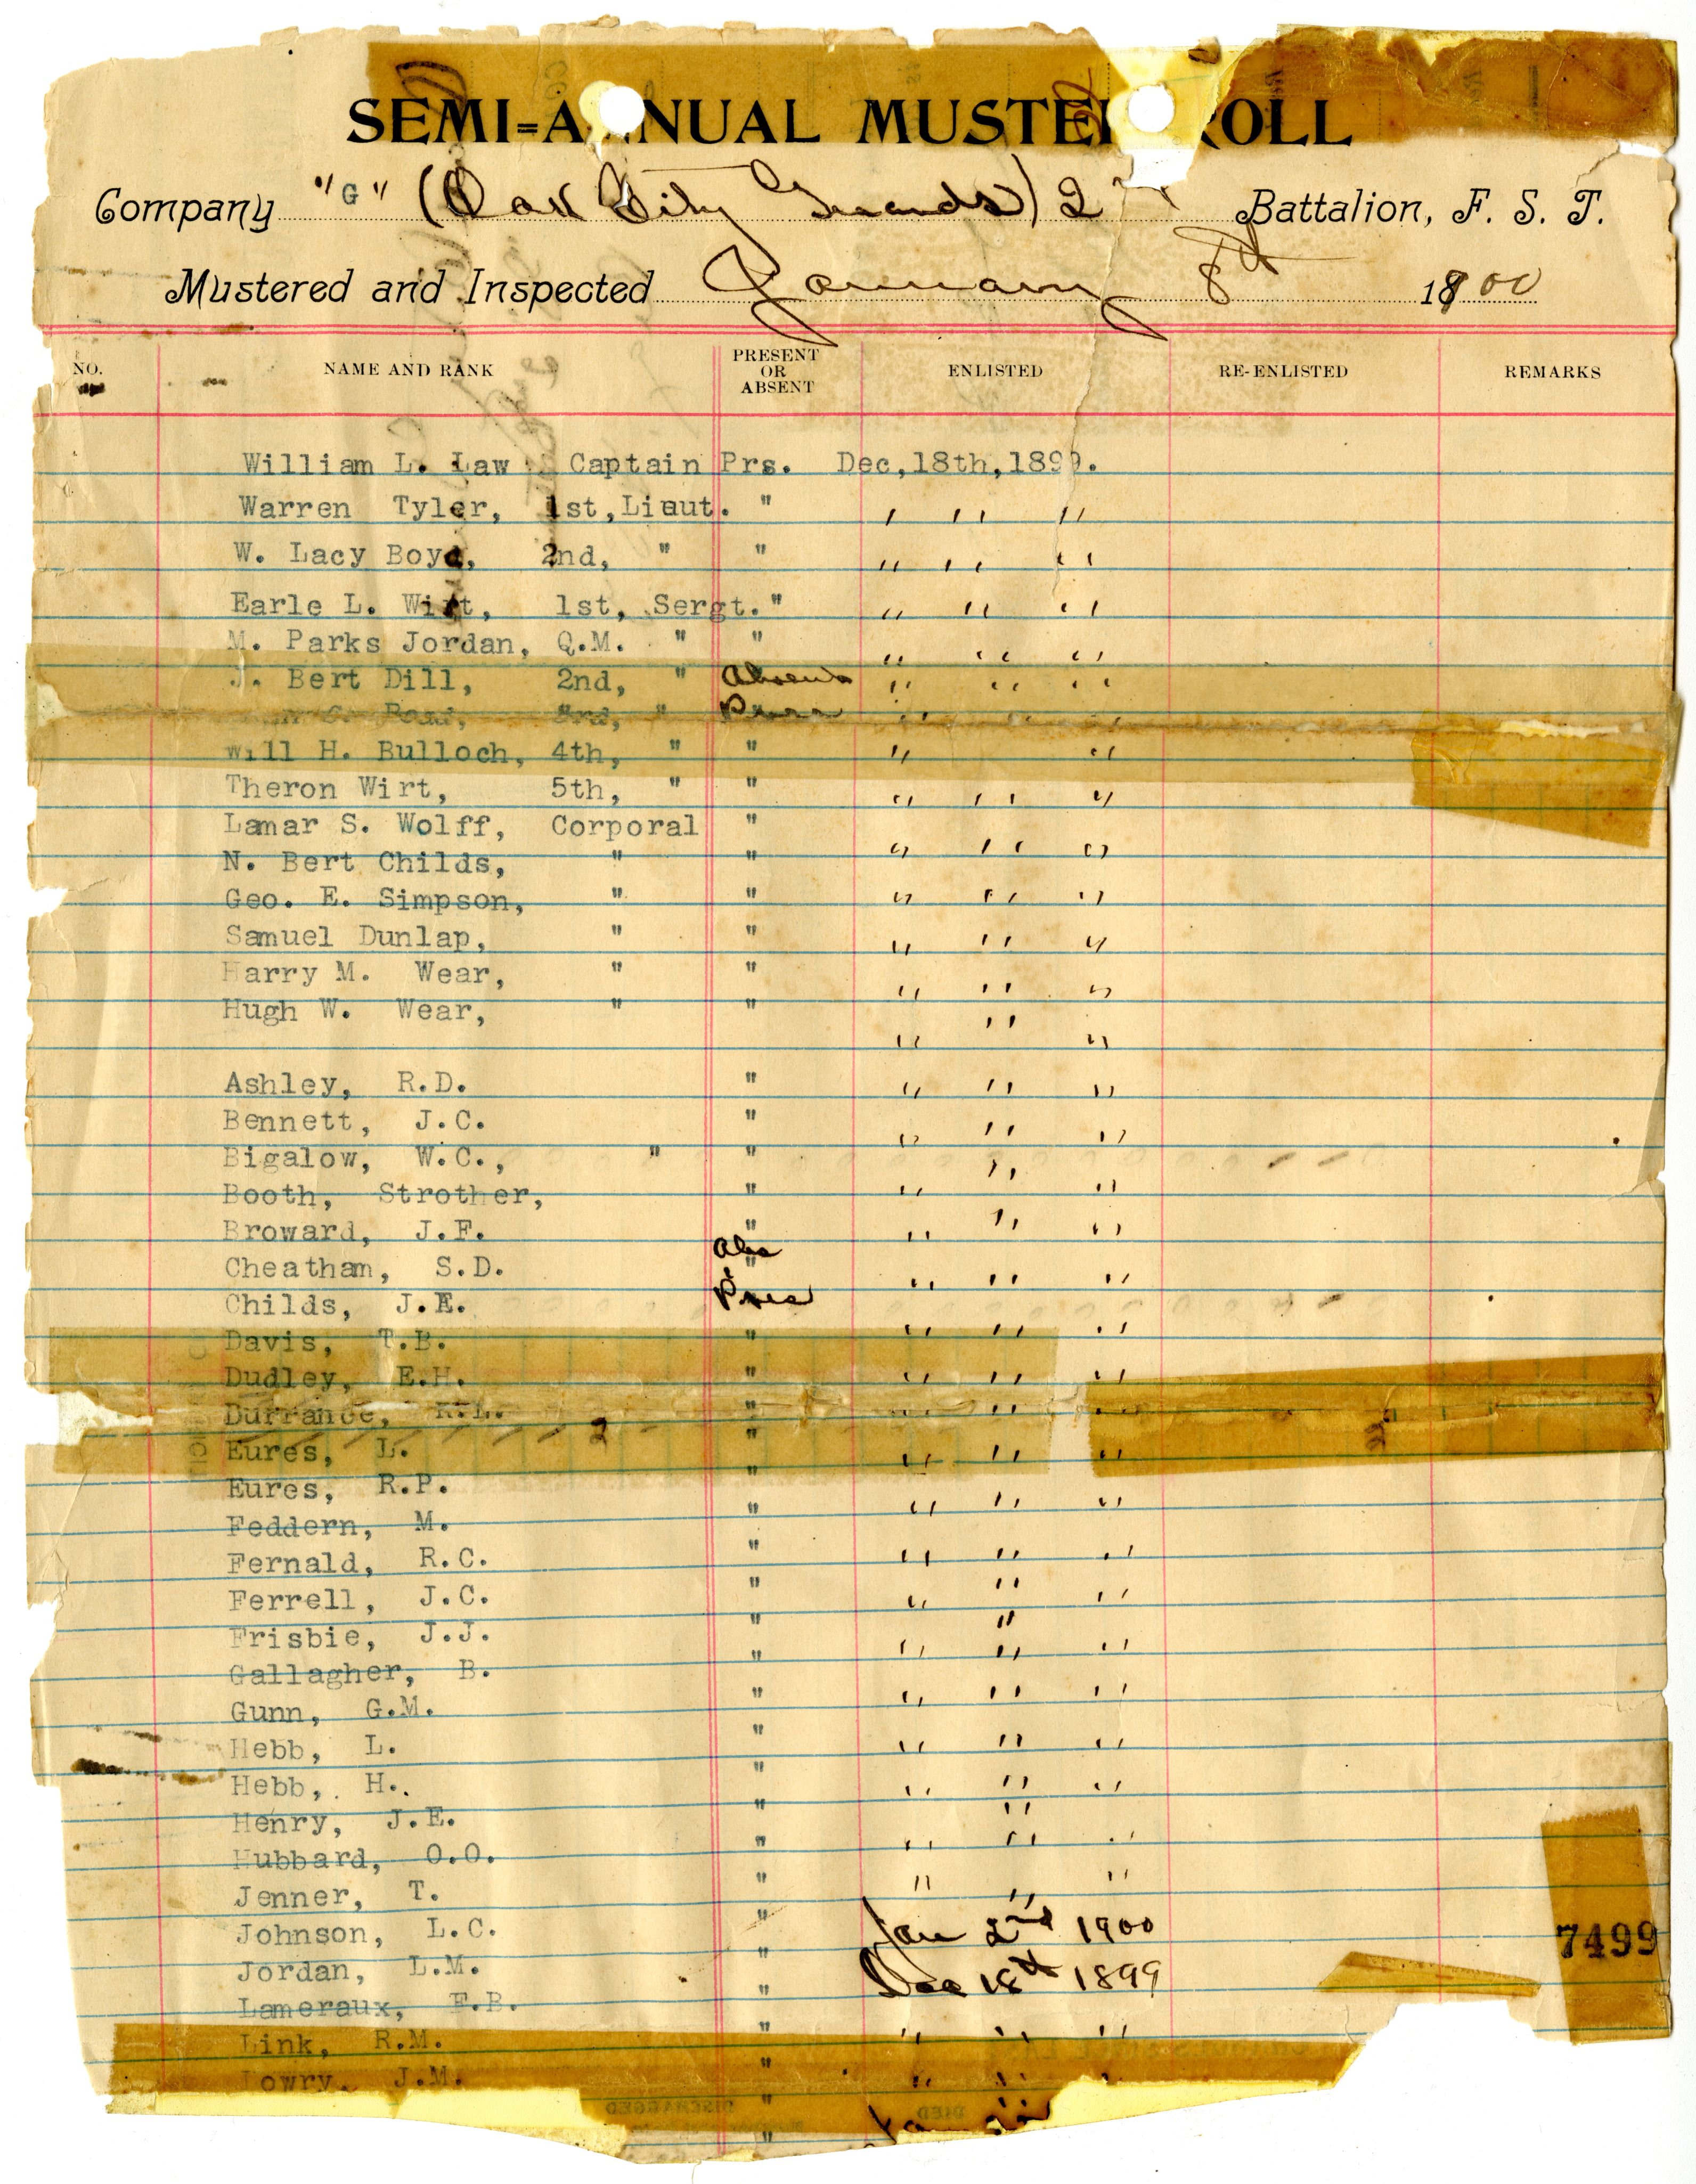 SEMI=ANNUAL MUSTER ROLL
Company "G" (Oak City Guards) 2nd Battalion, F. S. T.
Mustered and Inspected January 8th 1900
NO. NAME AND RANK PRESENT OR ABSENT ENLISTED RE-ENLISTED REMARKS
William L. Law Captain Prs. Dec,18th,1899.
Warren Tyler, 1st,Lieut. " " " "
W. Lacy Boyd, 2nd, " " " " "
Earle L. Wirt, 1st, Sergt." " " "
M. Parks Jordan, Q.M. " " " " "
J. Bert Dill, 2nd, " Absent " " "
3rd, " " " "
Will H. Bulloch, 4th, " " " "
Theron Wirt, 5th, " " " " "
Lamar S. Wolff, Corporal " " " "
N. Bert Childs, " " " " "
Geo. E. Simpson, " " " " "
Samuel Dunlap, " " " " "
Harry M. Wear, " " " " "
Hugh W. Wear, " " " " "
Ashley, R.D. " " " "
Bennett, J.C. " " " "
Bigalow, W.C., " " "
Booth, Strother, " " "
Broward, J.F. " " " "
Cheatham, S.D. Abs " " " "
Childs, J.E. Pres
Davis, T.B. " " " "
Dudley, E.H. " " " "
Durrance, " " " "
Eures, L. " " " "
Eures, R.P. "
Feddern, M. " " " "
Fernald, R.C. " " " "
Ferrell, J.C. " " " "
Frisbie, J.J. " " " "
Gallagher, B. "
Gunn, G.M. " " " "
Hebb, L. " " " "
Hebb, H. " " " "
Henry, J.E. " "
Hubbard, O.O. " " " "
Jenner, T. " " " "
Johnson, L.C. " Jan 2nd 1900
Jordan, L.M. " Dec 18th 1899
Lameraux, F.B. "
Link, R.M. " " " "
Lowry, J.M. " " " "
7499
DISCHARGED DIED